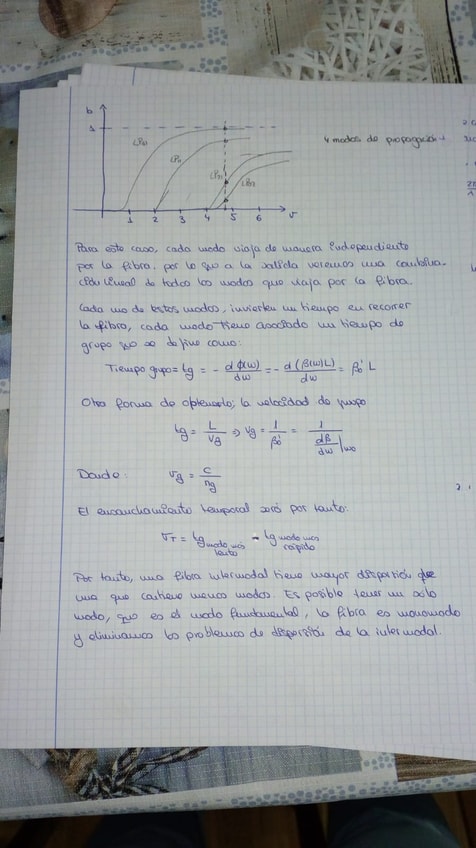 b
1
LP01
LP11
LP21
LP02
1 2 3 4 5 6 V
4 modos de propagación
Para este caso, cada modo viaja de manera independiente
por la fibra, por lo que a la salida veremos una combina
ción lineal de todos los modos que viaja por la fibra.
Cada uno de estos modos, invierten un tiempo en recorrer
la fibra, cada modo tiene asociado un tiempo de
grupo que se define como:
Tiempo grupo = tg = - dϕ(w)/dw = - d(β(w)L)/dw = β0' L
Otra forma de obtenerlo; la velocidad de grupo
tg = L/vg ⇒ vg = 1/β0' = 1/(dβ/dw)|w0
Donde: vg = c/ng
El ensanchamiento temporal será por tanto:
σT = tg modo más lento - tg modo más rápido
Por tanto, una fibra intermodal tiene mayor dispersión que
una que contiene menos modos. Es posible tener un solo
modo, que es el modo fundamental, la fibra es monomodo
y eliminamos los problemas de dispersión de la intermodal.